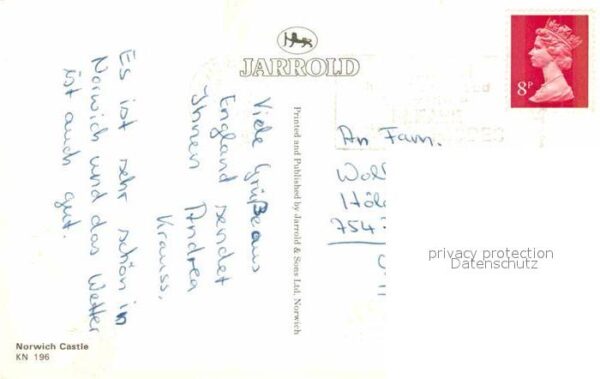 JARROLD
8P
Viele Grüße aus
England sendet
Ihnen Andrea
Krauss.
Es ist sehr schön in
Norwich und das Wetter
ist auch gut.
Printed and Published by Jarrold & Sons Ltd. Norwich
An Fam.
754
privacy protection
Datenschutz
Norwich Castle
KN 196